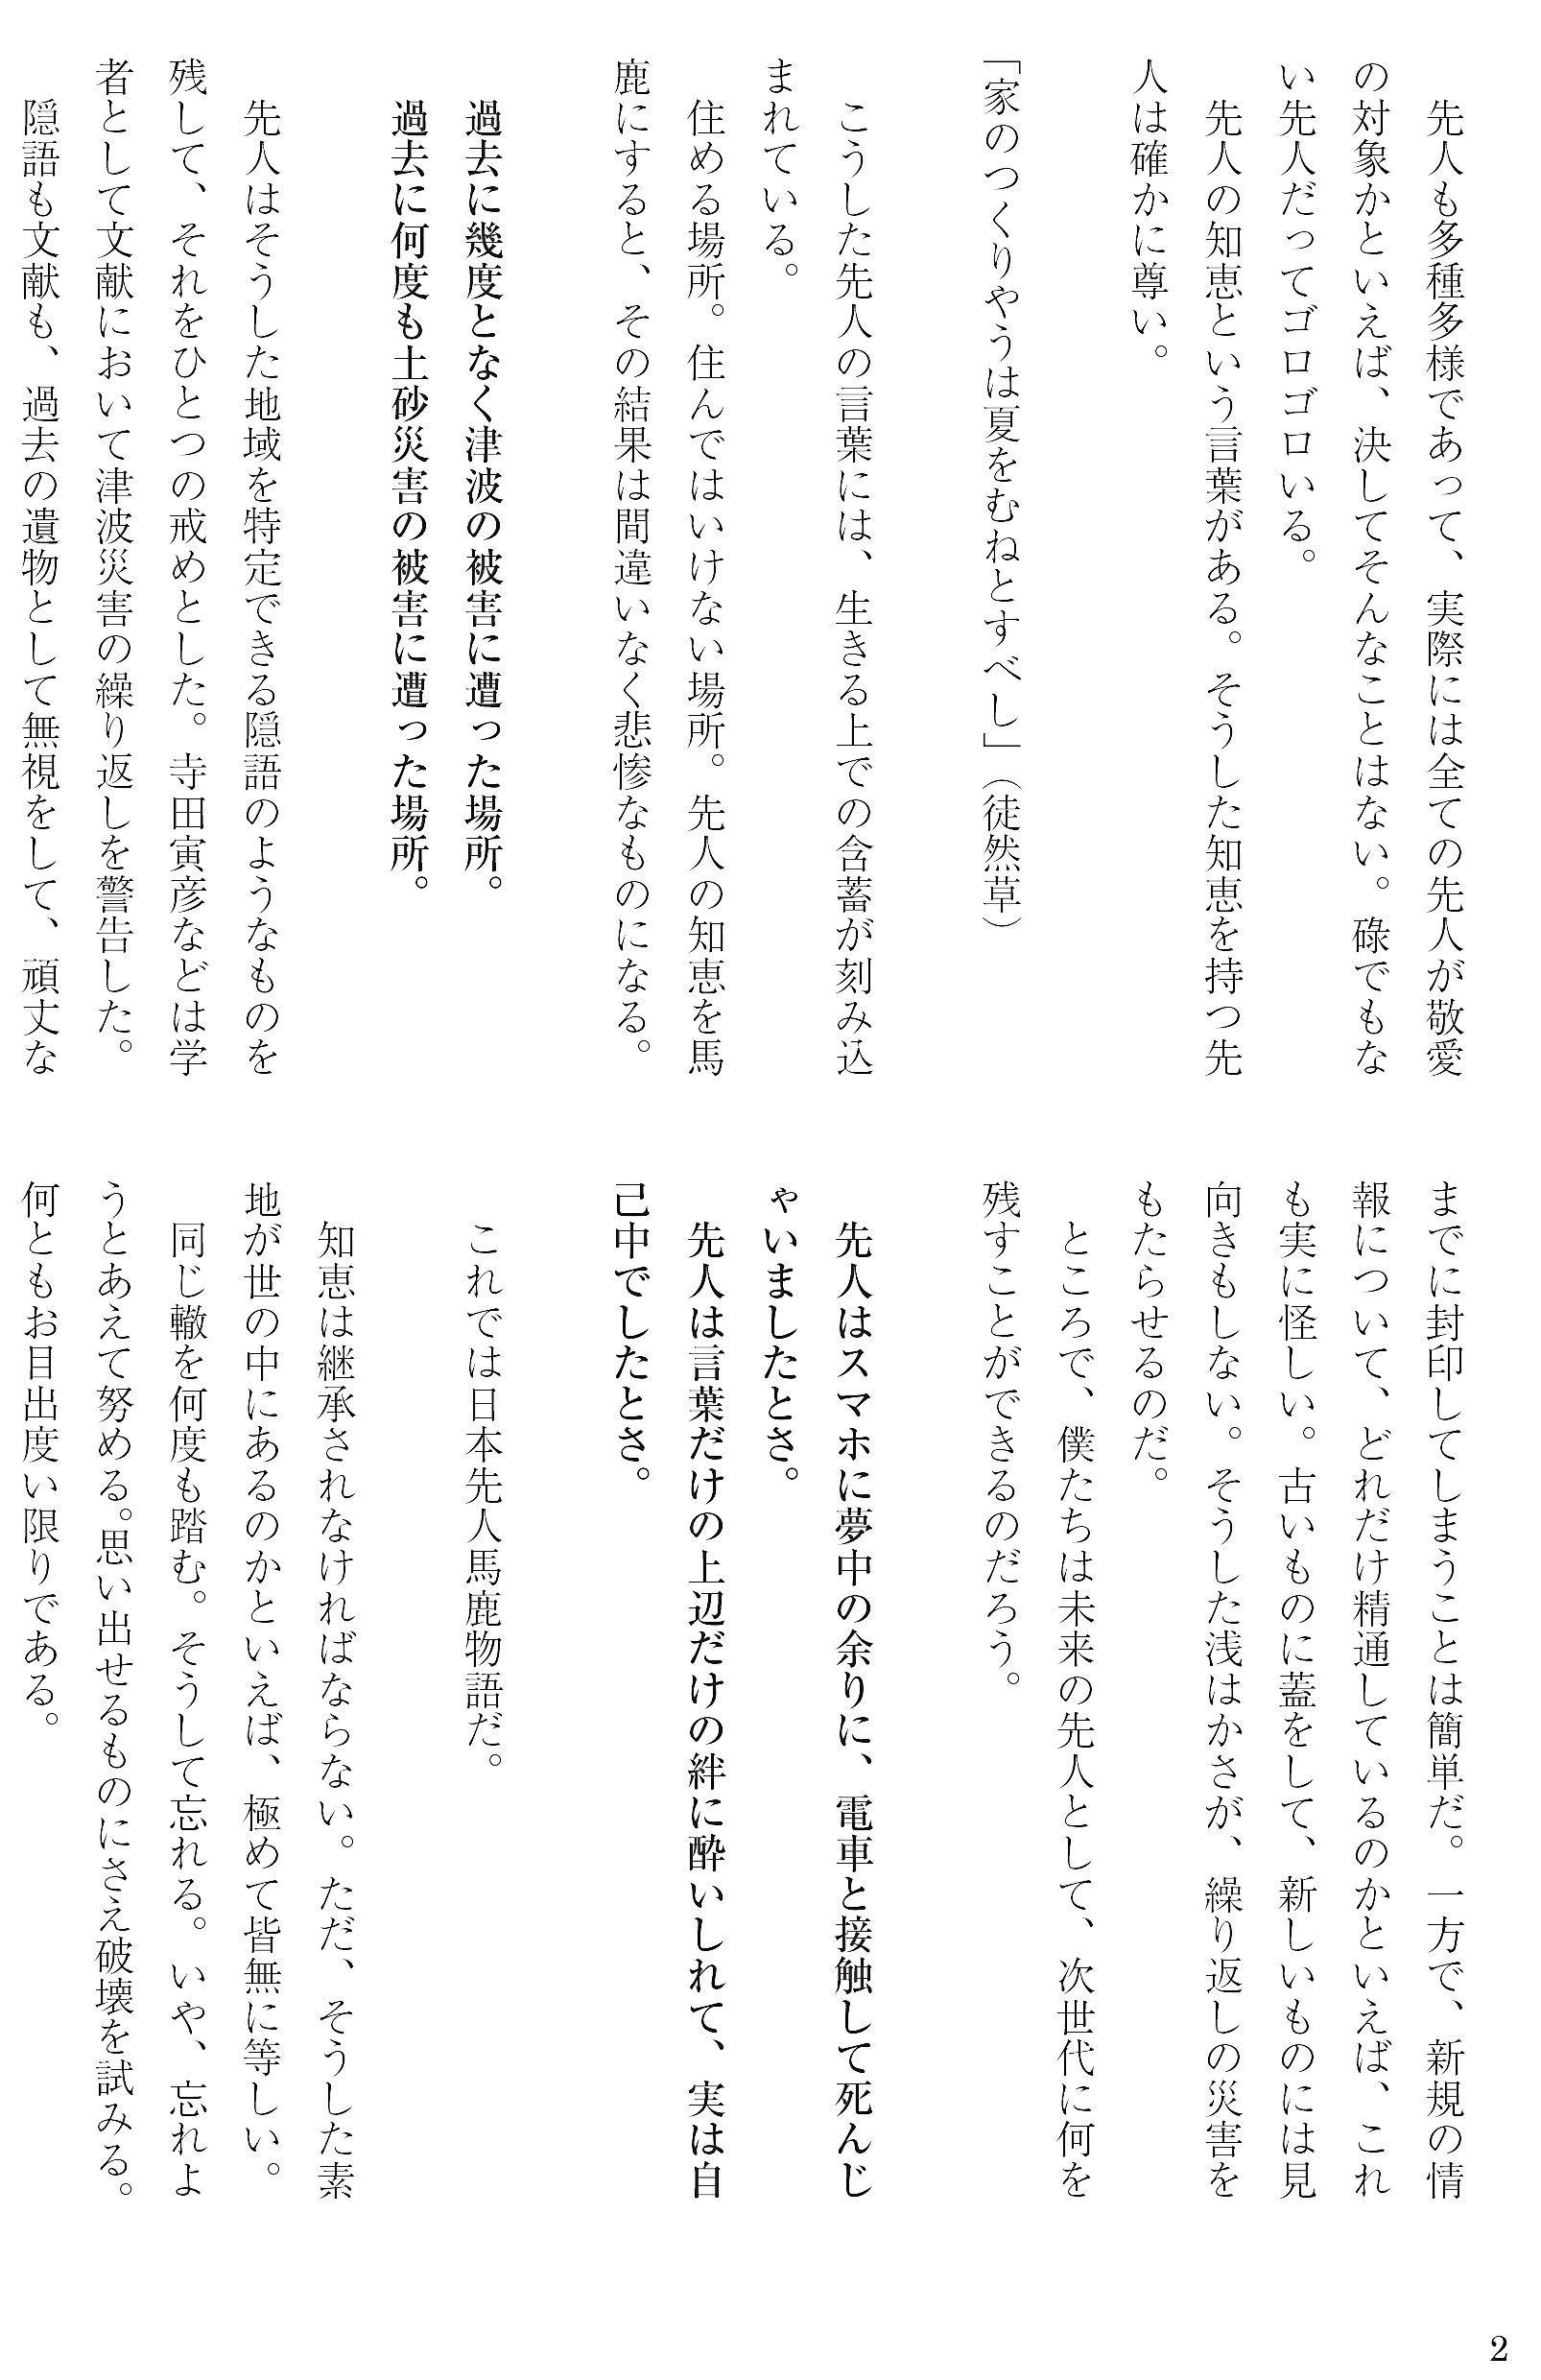 先人も多種多様であって、実際には全ての先人が敬愛
の対象かといえば、決してそんなことはない。碌でもな
い先人だってゴロゴロいる。
先人の知恵という言葉がある。そうした知恵を持つ先
人は確かに尊い。
「家のつくりやうは夏をむねとすべし」（徒然草）
こうした先人の言葉には、生きる上での含蓄が刻み込
まれている。
住める場所。住んではいけない場所。先人の知恵を馬
鹿にすると、その結果は間違いなく悲惨なものになる。
過去に幾度となく津波の被害に遭った場所。
過去に何度も土砂災害の被害に遭った場所。
先人はそうした地域を特定できる隠語のようなものを
残して、それをひとつの戒めとした。寺田寅彦などは学
者として文献において津波災害の繰り返しを警告した。
隠語も文献も、過去の遺物として無視をして、頑丈な
までに封印してしまうことは簡単だ。一方で、新規の情
報について、どれだけ精通しているのかといえば、これ
も実に怪しい。古いものに蓋をして、新しいものには見
向きもしない。そうした浅はかさが、繰り返しの災害を
もたらせるのだ。
ところで、僕たちは未来の先人として、次世代に何を
残すことができるのだろう。
先人はスマホに夢中の余りに、電車と接触して死んじ
ゃいましたとさ。
先人は言葉だけの上辺だけの絆に酔いしれて、実は自
己中でしたとさ。
これでは日本先人馬鹿物語だ。
知恵は継承されなければならない。ただ、そうした素
地が世の中にあるのかといえば、極めて皆無に等しい。
同じ轍を何度も踏む。そうして忘れる。いや、忘れよ
うとあえて努める。思い出せるものにさえ破壊を試みる。
何ともお目出度い限りである。
2